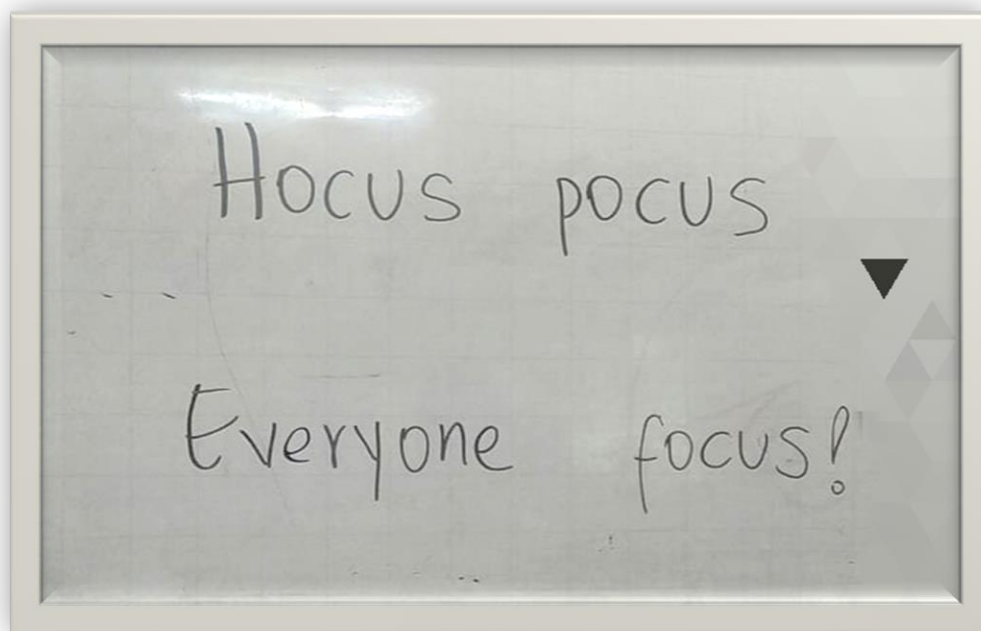 Hocus pocus
Everyone focus!